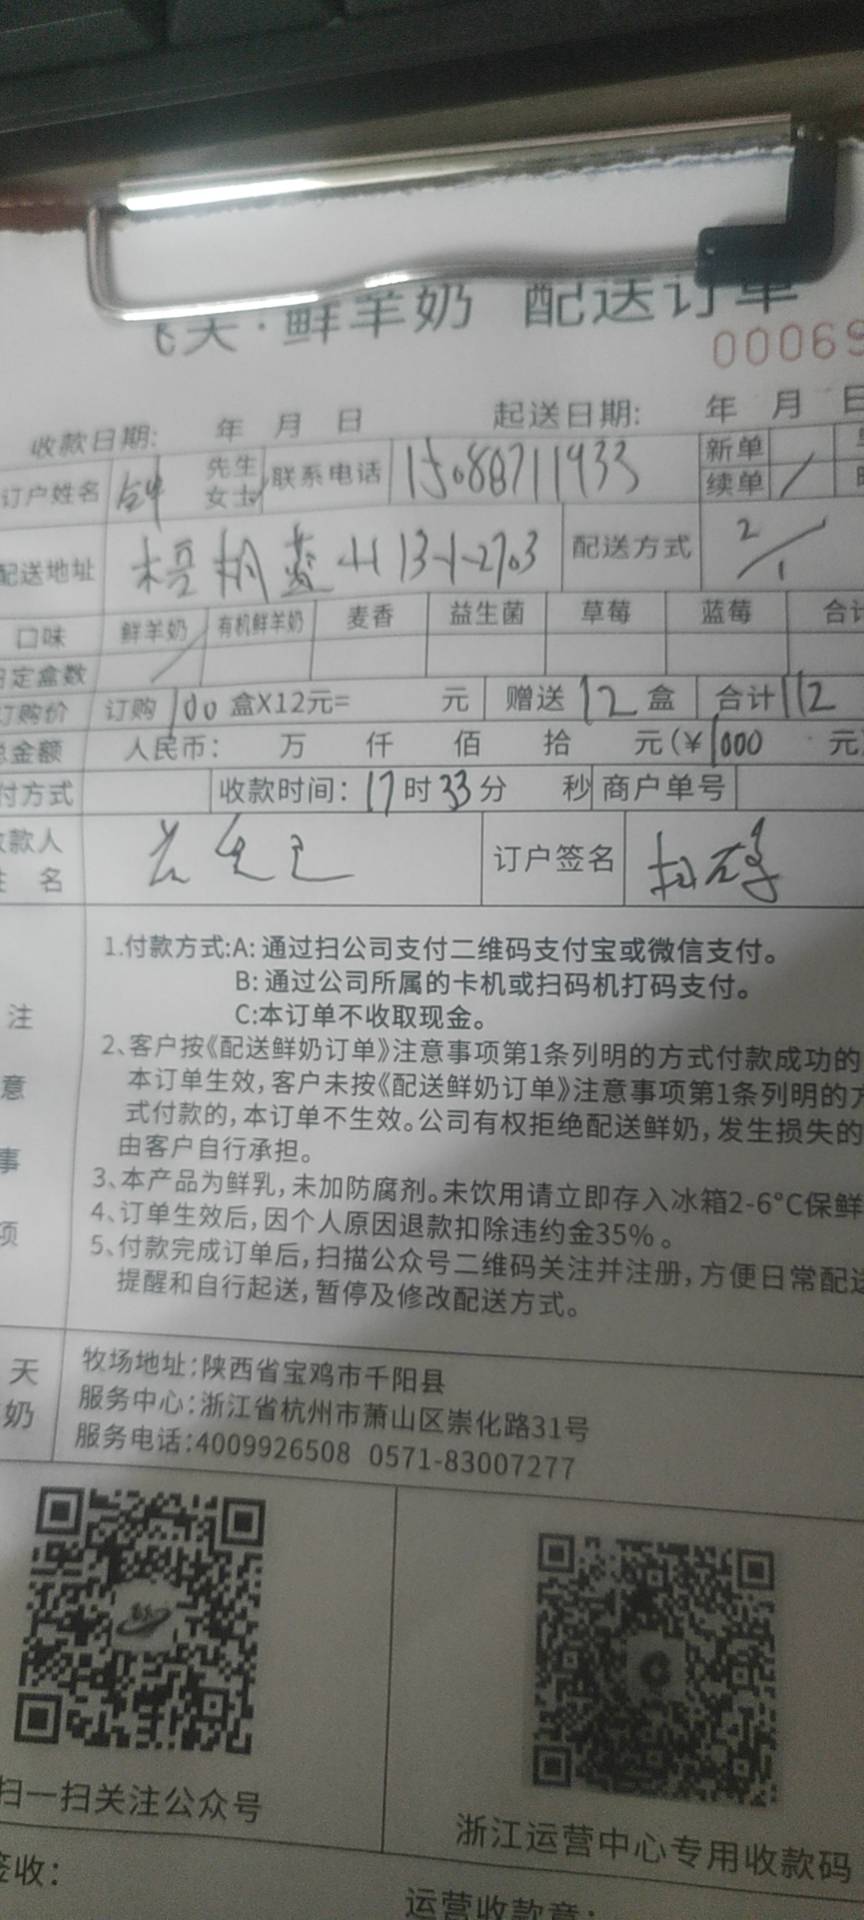 飞天·鲜羊奶 配送订单
00069
收款日期: 年 月 日 起送日期: 年 月 日
订户姓名 钟 先生 女士 联系电话 15088711933 新单 续单
配送地址 梧桐蓝山 13-1-2703 配送方式 2/1
口味 鲜羊奶 有机鲜羊奶 麦香 益生菌 草莓 蓝莓 合计
定盒数
订购价 订购 100 盒X12元= 元 赠送 12 盒 合计 112
总金额 人民币: 万 仟 佰 拾 元(¥1000 元)
付方式 收款时间: 17时33分 秒 商户单号
收款人姓名 订户签名
注意事项
1.付款方式:A: 通过扫公司支付二维码支付宝或微信支付。
B: 通过公司所属的卡机或扫码机打码支付。
C:本订单不收取现金。
2、客户按《配送鲜奶订单》注意事项第1条列明的方式付款成功的
本订单生效,客户未按《配送鲜奶订单》注意事项第1条列明的方
式付款的,本订单不生效。公司有权拒绝配送鲜奶,发生损失的
由客户自行承担。
3、本产品为鲜乳,未加防腐剂。未饮用请立即存入冰箱2-6°C保鲜
4、订单生效后,因个人原因退款扣除违约金35%。
5、付款完成订单后,扫描公众号二维码关注并注册,方便日常配送
提醒和自行起送,暂停及修改配送方式。
天
奶
牧场地址:陕西省宝鸡市千阳县
服务中心:浙江省杭州市萧山区崇化路31号
服务电话:4009926508 0571-83007277
扫一扫关注公众号
浙江运营中心专用收款码
签收:
运营收款章: